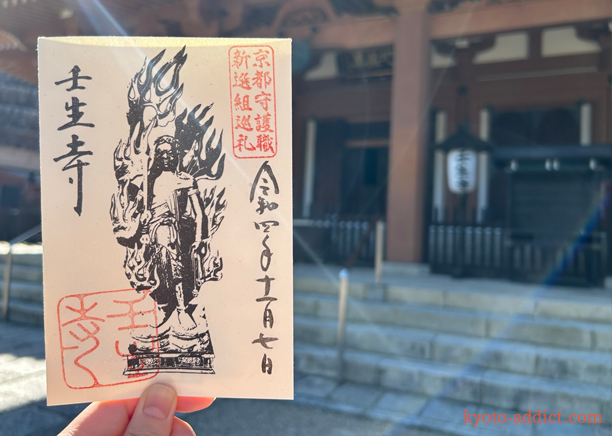 京都守護職
新選組巡礼
令和四年十一月七日
壬生寺
kyoto-addict.com